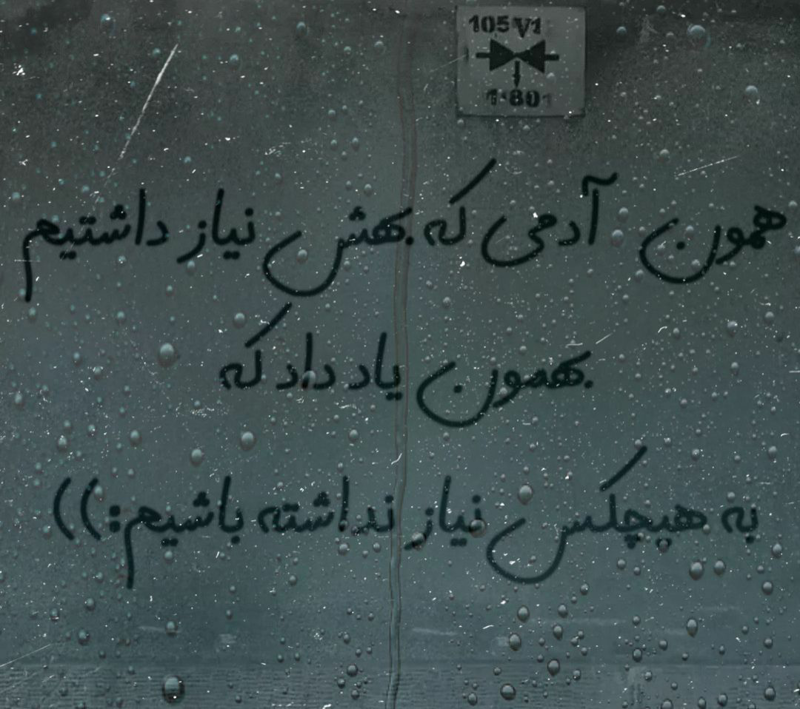 105 V1
1·801
همون آدمی که بهش نیاز داشتیم
بهمون یاد داد که
به هیچکس نیاز نداشته باشیم:))